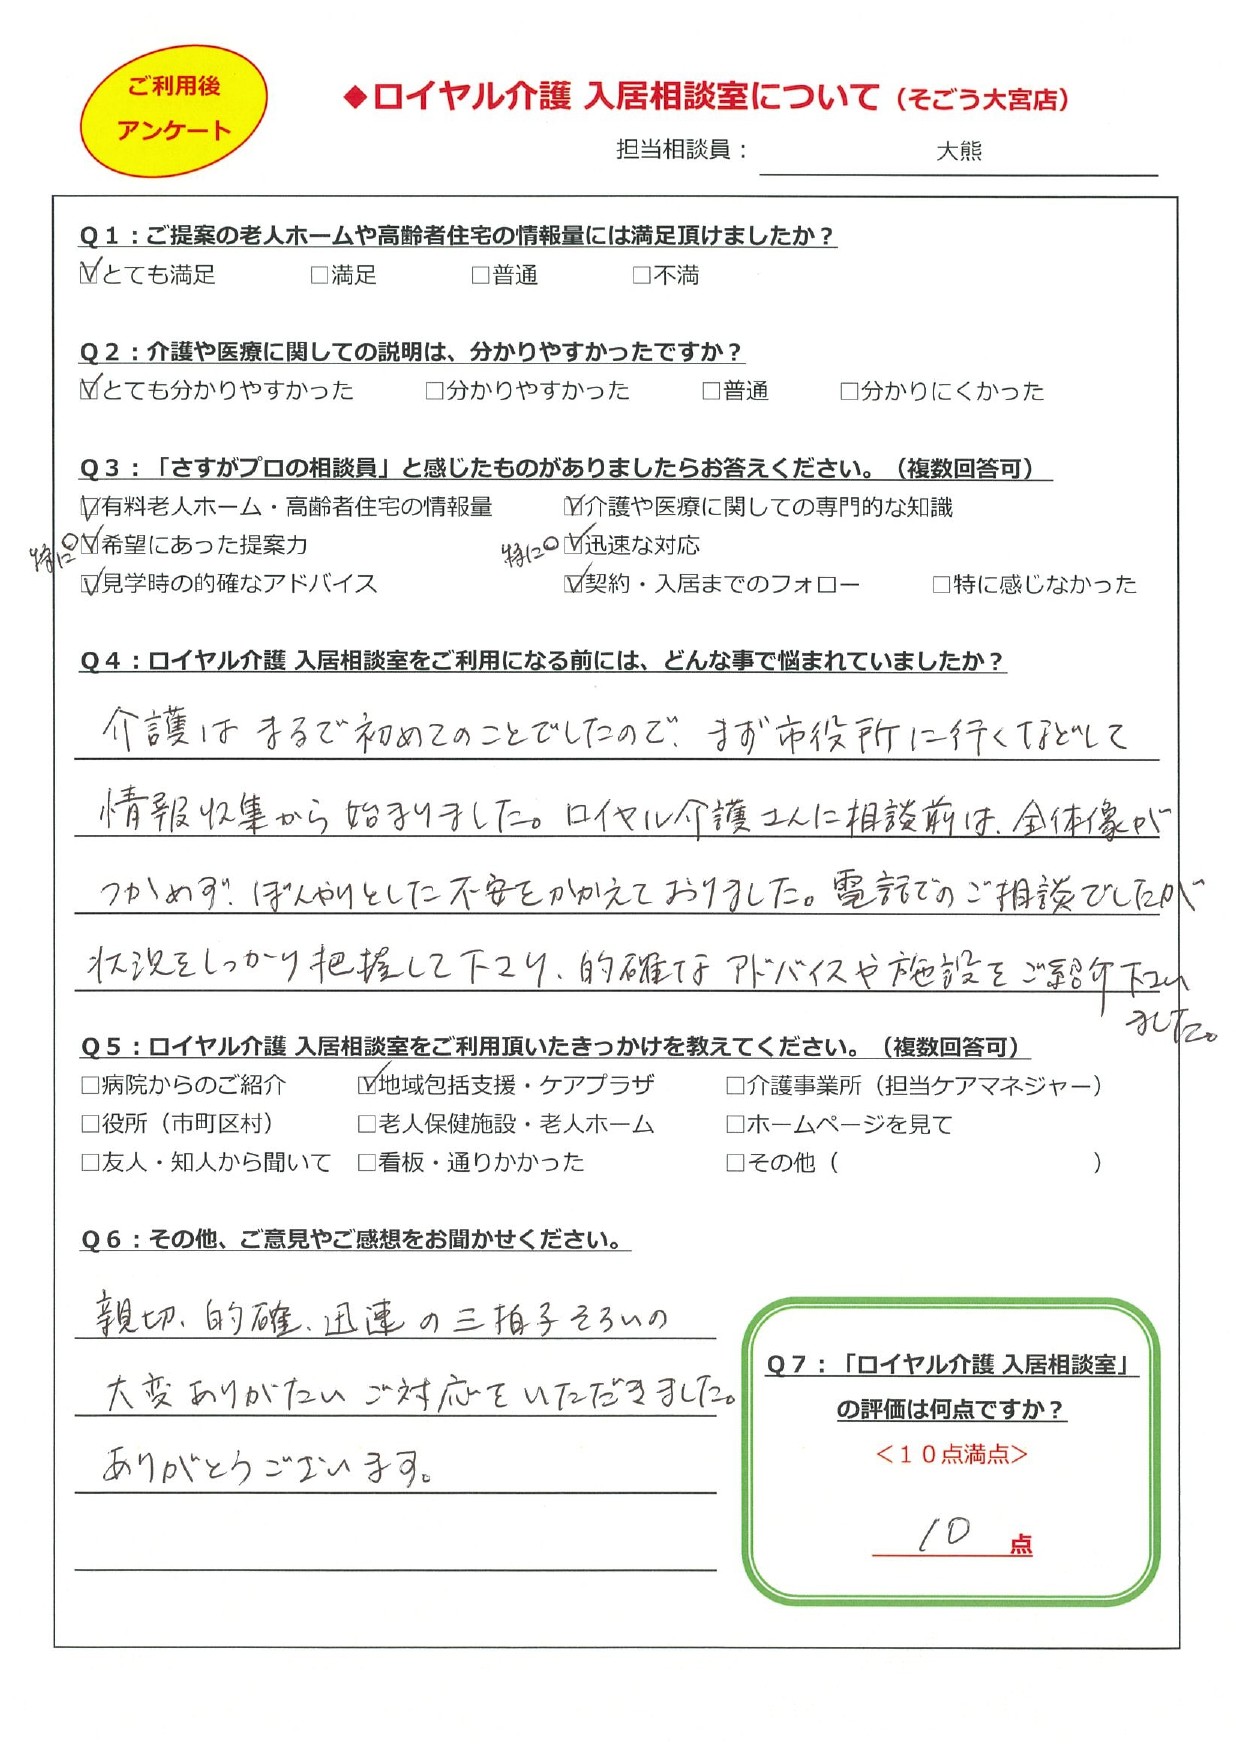 ご利用後
アンケート
◆ロイヤル介護 入居相談室について（そごう大宮店）
担当相談員： 大熊
Q１：ご提案の老人ホームや高齢者住宅の情報量には満足頂けましたか？
☑とても満足 □満足 □普通 □不満
Q２：介護や医療に関しての説明は、分かりやすかったですか？
☑とても分かりやすかった □分かりやすかった □普通 □分かりにくかった
Q３：「さすがプロの相談員」と感じたものがありましたらお答えください。（複数回答可）
☑有料老人ホーム・高齢者住宅の情報量 ☑介護や医療に関しての専門的な知識
特に○ ☑希望にあった提案力 特に○ ☑迅速な対応
☑見学時の的確なアドバイス ☑契約・入居までのフォロー □特に感じなかった
Q４：ロイヤル介護 入居相談室をご利用になる前には、どんな事で悩まれていましたか？
介護はまるで初めてのことでしたので、まず市役所に行くなどして
情報収集から始まりました。ロイヤル介護さんに相談前は、全体像が
つかめず、ぼんやりとした不安をかかえておりました。電話でのご相談でしたが
状況をしっかり把握して下さり、的確なアドバイスや施設をご紹介下さい
ました。
Q５：ロイヤル介護 入居相談室をご利用頂いたきっかけを教えてください。（複数回答可）
□病院からのご紹介 ☑地域包括支援・ケアプラザ □介護事業所（担当ケアマネジャー）
□役所（市町区村） □老人保健施設・老人ホーム □ホームページを見て
□友人・知人から聞いて □看板・通りかかった □その他（ ）
Q６：その他、ご意見やご感想をお聞かせください。
親切、的確、迅速の三拍子そろいの
大変ありがたいご対応をいただきました。
ありがとうございます。
Q７：「ロイヤル介護 入居相談室」
の評価は何点ですか？
＜１０点満点＞
10 点